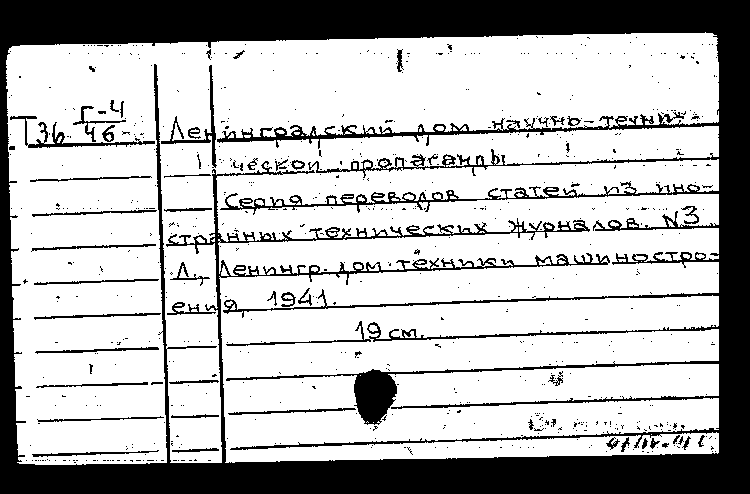 Г-4
Т36 46- Ленинградский дом научно-техни-
ческой пропаганды
Серия переводов статей из ино-
странных технических журналов. N3
Л., Ленингр. дом техники машиностро-
ения, 1941.
19 см.